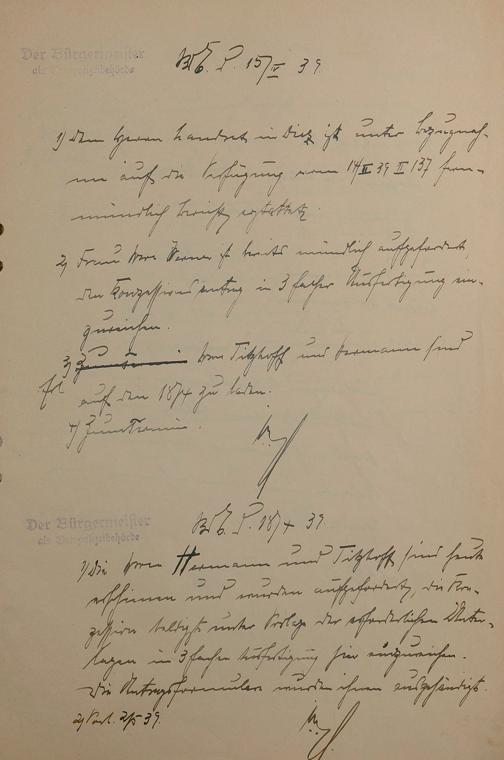 Der Bürgermeister
als Ortspolizeibehörde
15/IV 39.
1) Dem Herrn Landrat in Diez ist unter Bezugnah-
me auf die Verfügung vom 14/II 39 II 137 fern-
mündlich Bericht erstattet.
2) Frau Werner ist bereits mündlich aufgefordert,
den Konzessionsantrag in 3 facher Ausfertigung ein-
zureichen.
3) Zum Termin Titzhoff und Hermann sind
auf den 18/4 zu laden.
4) Zum Termin.
Der Bürgermeister
als Ortspolizeibehörde
39.
1) Die Herren Hermann und Titzhoff sind heute
erschienen und wurden aufgefordert, die Kon-
zession unter Vorlage der erforderlichen Unter-
lagen in 3 fachen Ausfertigung hier einzureichen.
Die Antragsformulare wurden ihnen ausgehändigt.
2) 2/5 39.